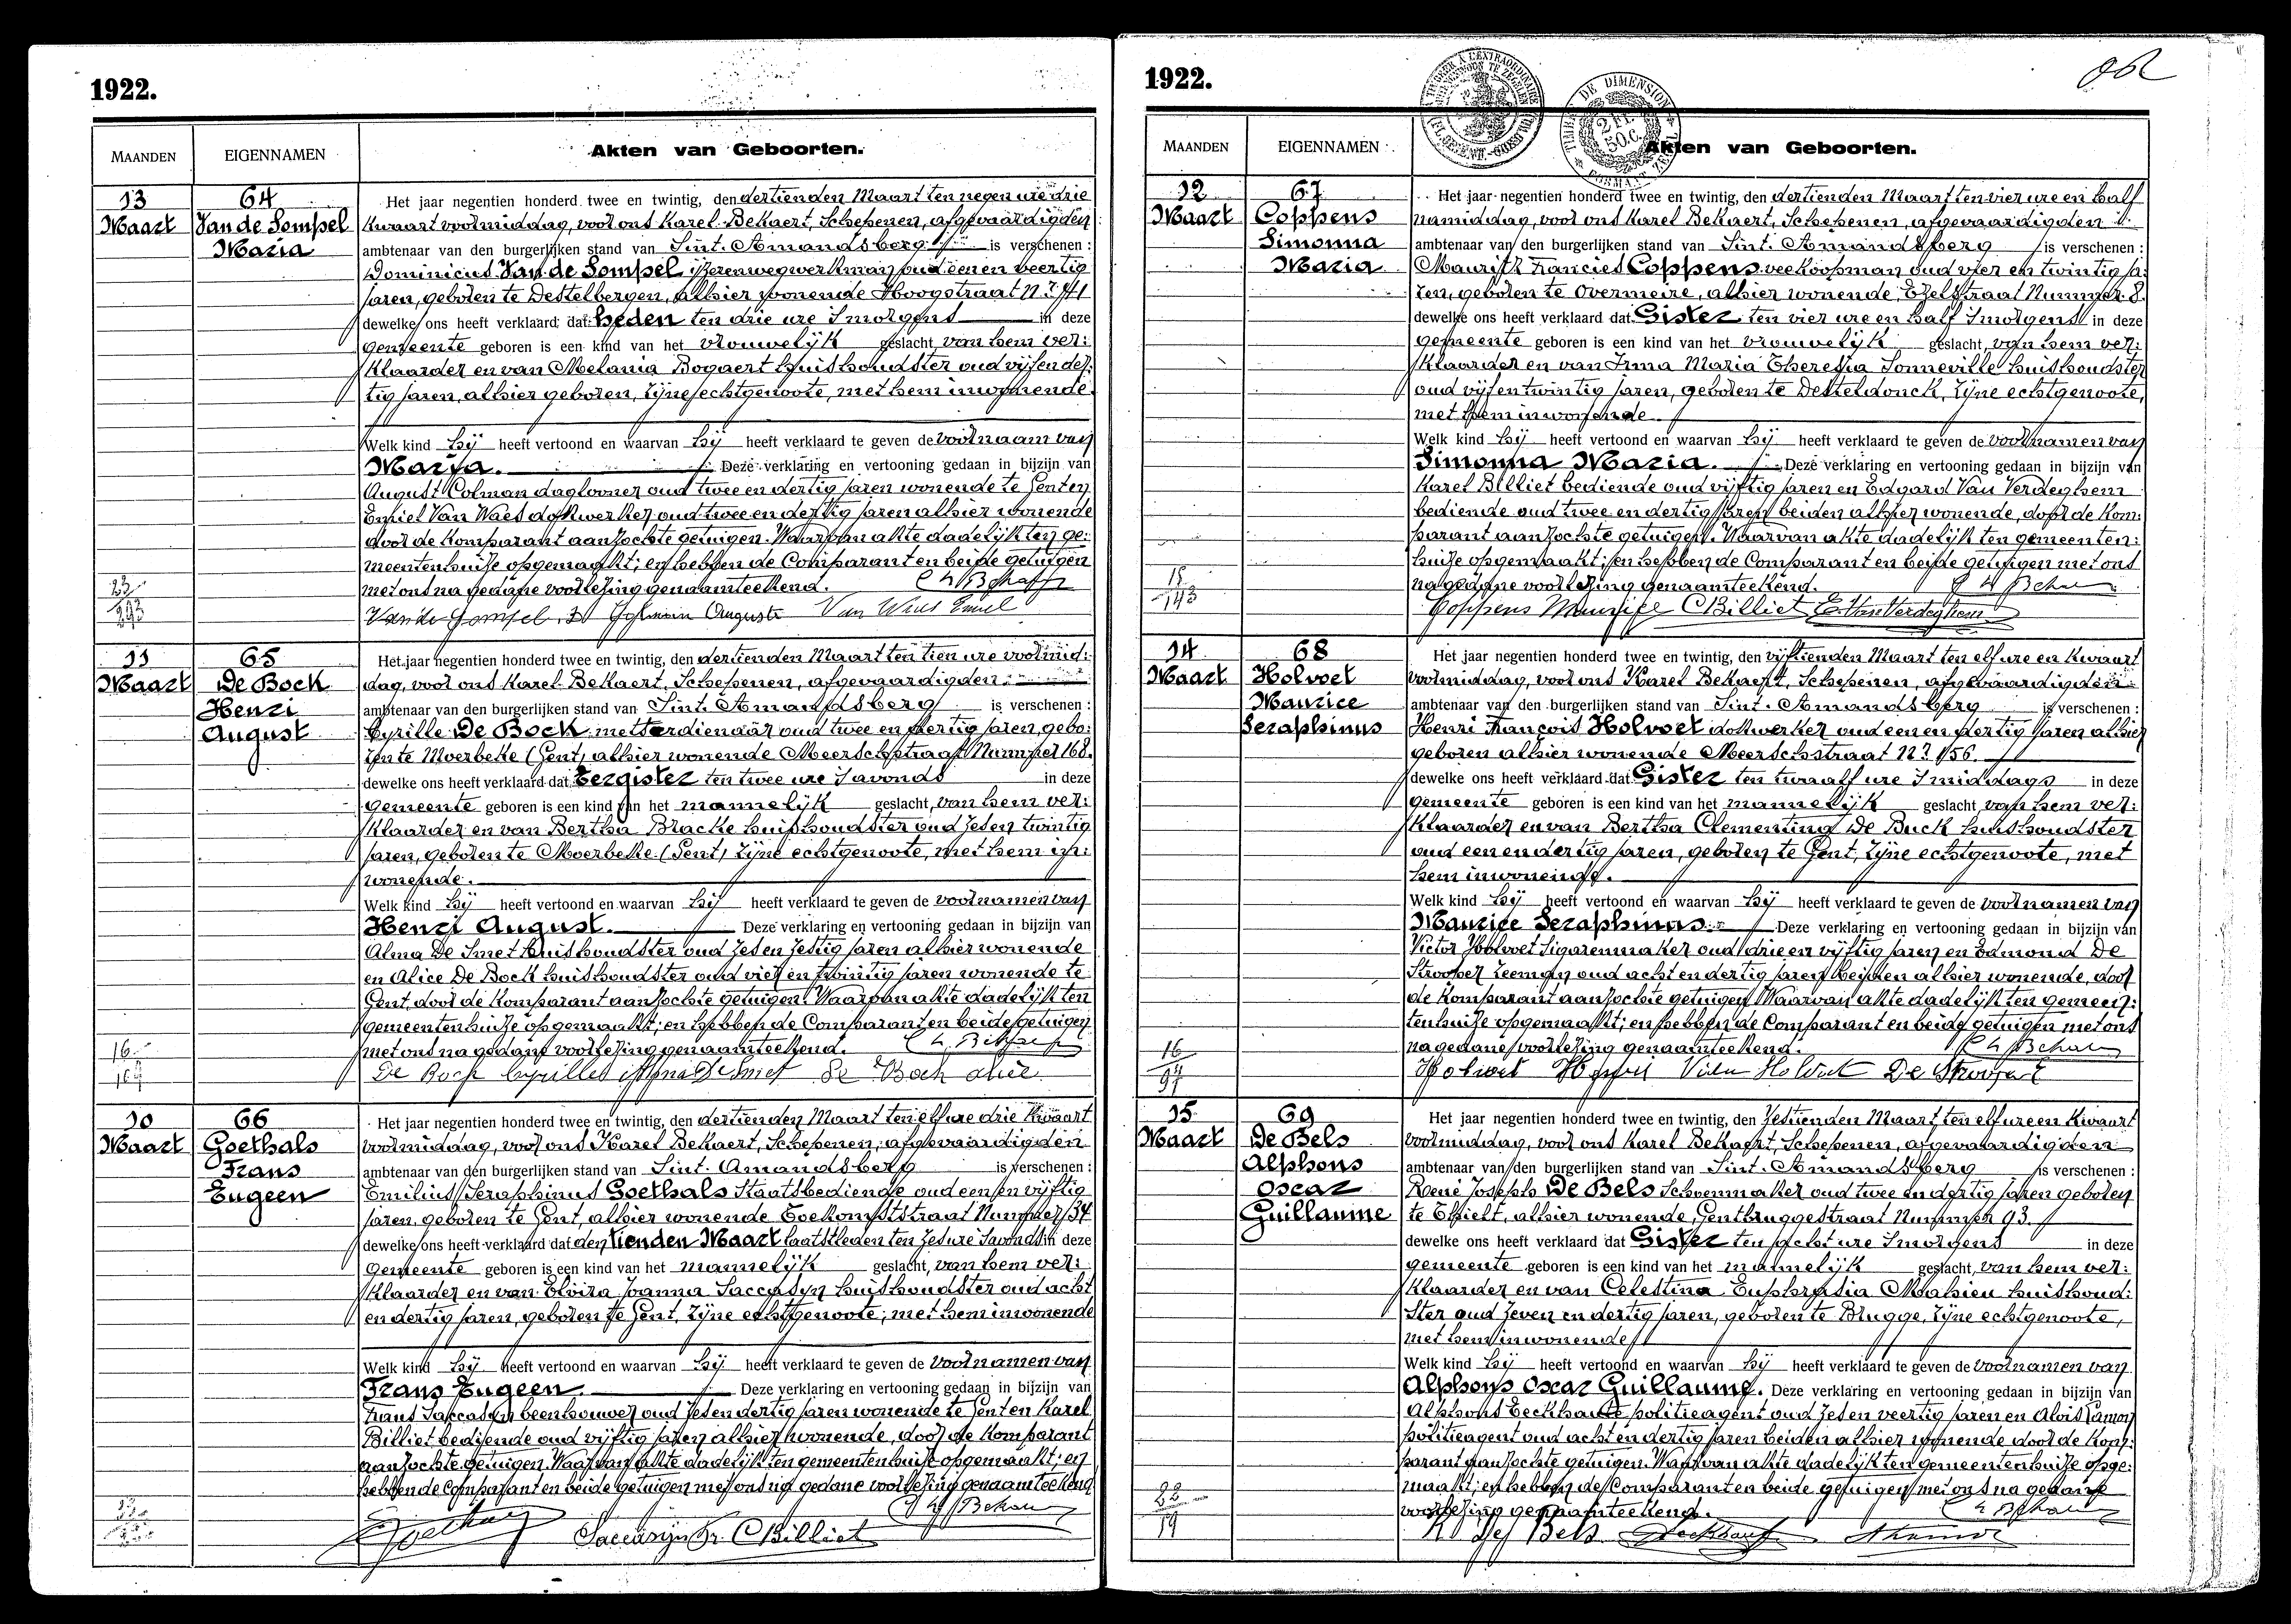 1922.
MAANDEN
EIGENNAMEN
Akten van Geboorten.
13
Maart
64
Van de Sompel
Maria
Het jaar negentien honderd twee en twintig, den dertienden Maart ten negen ure drie
kwaart voormiddag, voor ons Karel Bekaert, Schepenen, afgevaardigden
ambtenaar van den burgerlijken stand van Sint-Amandsberg is verschenen :
Dominicus Van de Sompel ijzerenwegwerkman oud eenen veertig
jaren, geboren te Destelbergen, alhier wonende Hoogstraat
dewelke ons heeft verklaard dat Heden ten drie ure 's morgens in deze
gemeente geboren is een kind van het vrouwelijk geslacht, van hem ver-
klaarder en van Melania Bogaert huishoudster oud vijf en der-
tig jaren, alhier geboren, zijne echtgenoote, met hem inwonende.
Welk kind hij heeft vertoond en waarvan hij heeft verklaard te geven de voornaam van
Maria. Deze verklaring en vertooning gedaan in bijzijn van
August Colman daglooner oud twee en dertig jaren wonende te Gent en
Emiel Van Waes dokwerker oud twee en dertig jaren alhier wonende
door de Komparant aanzochte getuigen. Waarvan akte dadelijk ten ge-
meentenhuize opgemaakt; en hebben de Comparant en beide getuigen
met ons na gedane voorlezing genaamteekend.
Van de Sompel D Colman Auguste Van Waes Emiel
11
Maart
65
De Bock
Henri
August
Het jaar negentien honderd twee en twintig, den dertienden Maart ten tien ure voormid-
dag, voor ons Karel Bekaert, Schepenen, afgevaardigden
ambtenaar van den burgerlijken stand van Sint-Amandsberg is verschenen :
Cyrille De Bock metserdienaar oud twee en dertig jaren, gebo-
ren te Moerbeke (Gent) alhier wonende Meerschstraat Nummer 168.
dewelke ons heeft verklaard dat Eergister ten twee ure 's avonds in deze
gemeente geboren is een kind van het mannelijk geslacht, van hem ver-
klaarder en van Bertha Bracke huishoudster oud zes en twintig
jaren, geboren te Moerbeke (Gent) zijne echtgenoote, met hem in-
wonende.
Welk kind hij heeft vertoond en waarvan hij heeft verklaard te geven de voornamen van
Henri August. Deze verklaring en vertooning gedaan in bijzijn van
Alma De Smet huishoudster oud zes en zestig jaren alhier wonende
en Alice De Bock huishoudster oud vier en twintig jaren wonende te
Gent, door de Komparant aanzochte getuigen. Waarvan akte dadelijk ten
gemeentenhuize opgemaakt; en hebben de Comparant en beide getuigen
met ons na gedane voorlezing genaamteekend.
De Bock Cyrille Alma De Smet De Bock Alice
10
Maart
66
Goethals
Frans
Eugeen
Het jaar negentien honderd twee en twintig, den dertienden Maart ten elf ure drie kwaart
voormiddag, voor ons Karel Bekaert, Schepenen, afgevaardigden
ambtenaar van den burgerlijken stand van Sint-Amandsberg is verschenen :
Emilius Seraphinus Goethals Staatsbediende oud een en vijftig
jaren, geboren te Gent, alhier wonende Toekomststraat Nummer 34
dewelke ons heeft verklaard dat den tienden Maart laatstleden ten zes ure 's avonds in deze
gemeente geboren is een kind van het mannelijk geslacht, van hem ver-
klaarder en van Elvira Joanna Saccasyn huishoudster oud acht
en dertig jaren, geboren te Gent, zijne echtgenoote, met hem inwonende
Welk kind hij heeft vertoond en waarvan hij heeft verklaard te geven de voornamen van
Frans Eugeen. Deze verklaring en vertooning gedaan in bijzijn van
Frans Saccasyn beenhouwer oud zes en dertig jaren wonende te Gent en Karel
Billiet bediende oud vijftig jaren alhier wonende, door de Komparant
aanzochte getuigen. Waarvan akte dadelijk ten gemeentenhuize opgemaakt; en
hebben de Comparant en beide getuigen met ons na gedane voorlezing genaamteekend
Goethals Saccasyn Fr. C Billiet
1922.
MAANDEN
EIGENNAMEN
Akten van Geboorten.
12
Maart
67
Coppens
Simonna
Maria
Het jaar negentien honderd twee en twintig, den dertienden Maart ten vier ure en half
namiddag, voor ons Karel Bekaert, Schepenen, afgevaardigden
ambtenaar van den burgerlijken stand van Sint-Amandsberg is verschenen :
Maurits Francies Coppens veekoopman oud vier en twintig ja-
ren, geboren te Overmeire, alhier wonende, Ezelstraat Nummer 8.
dewelke ons heeft verklaard dat Gister ten vier ure en half 's morgens in deze
gemeente geboren is een kind van het vrouwelijk geslacht, van hem ver-
klaarder en van Irma Maria Theresia Sonneville huishoudster
oud vijf en twintig jaren, geboren te Desteldonck, zijne echtgenoote,
met hem inwonende
Welk kind hij heeft vertoond en waarvan hij heeft verklaard te geven de voornamen van
Simonna Maria. Deze verklaring en vertooning gedaan in bijzijn van
Karel Billiet bediende oud vijftig jaren en Edgard Van Verdeghem
bediende oud twee en dertig jaren beiden alhier wonende, door de Kom-
parant aanzochte getuigen. Waarvan akte dadelijk ten gemeenten-
huize opgemaakt; en hebben de Comparant en beide getuigen met ons
na gedane voorlezing genaamteekend.
15
143
Coppens Maurice C Billiet E Van Verdeghem
14
Maart
68
Holvoet
Maurice
Seraphinus
Het jaar negentien honderd twee en twintig, den vijftienden Maart ten elf ure en kwaart
voormiddag, voor ons Karel Bekaert, Schepenen, afgevaardigden
ambtenaar van den burgerlijken stand van Sint-Amandsberg is verschenen :
Henri François Holvoet dokwerker oud een en dertig jaren alhier
geboren alhier wonende Meerschstraat N? 156.
dewelke ons heeft verklaard dat Gister ten twaalf ure 's middags in deze
gemeente geboren is een kind van het mannelijk geslacht, van hem ver-
klaarder en van Bertha Clementina De Buck huishoudster
oud een en dertig jaren, geboren te Gent, zijne echtgenoote, met
hem inwonende.
Welk kind hij heeft vertoond en waarvan hij heeft verklaard te geven de voornamen van
Maurice Seraphinus. Deze verklaring en vertooning gedaan in bijzijn van
Victor Holvoet sigarenmaker oud drie en vijftig jaren en Edmond De
Strooper zeeman oud acht en dertig jaren beiden alhier wonende, door
de Komparant aanzochte getuigen. Waarvan akte dadelijk ten gemeen-
tenhuize opgemaakt; en hebben de Comparant en beide getuigen met ons
na gedane voorlezing genaamteekend.
16
97
Holvoet Henri Victor Holvoet De Strooper E
15
Maart
69
De Bels
Alphons
Oscar
Guillaume
Het jaar negentien honderd twee en twintig, den zestienden Maart ten elf ure en kwaart
voormiddag, voor ons Karel Bekaert, Schepenen, afgevaardigden
ambtenaar van den burgerlijken stand van Sint-Amandsberg is verschenen :
René Joseph De Bels schoenmaker oud twee en dertig jaren geboren
te Thielt, alhier wonende, Gentbruggestraat Nummer 93.
dewelke ons heeft verklaard dat Gister ten acht ure 's morgens in deze
gemeente geboren is een kind van het mannelijk geslacht, van hem ver-
klaarder en van Celestina Euphrasia Mahieu huishoud-
ster oud zeven en dertig jaren, geboren te Brugge, zijne echtgenoote,
met hem inwonende
Welk kind hij heeft vertoond en waarvan hij heeft verklaard te geven de voornamen van
Alphons Oscar Guillaume. Deze verklaring en vertooning gedaan in bijzijn van
Alphons Eeckhaute politieagent oud zes en veertig jaren en Aloïs
politieagent oud acht en dertig jaren beiden alhier wonende door de Kom-
parant aanzochte getuigen. Waarvan akte dadelijk ten gemeentenhuize opge-
maakt; en hebben de Comparant en beide getuigen met ons na gedane
voorlezing genaamteekend.
R De Bels